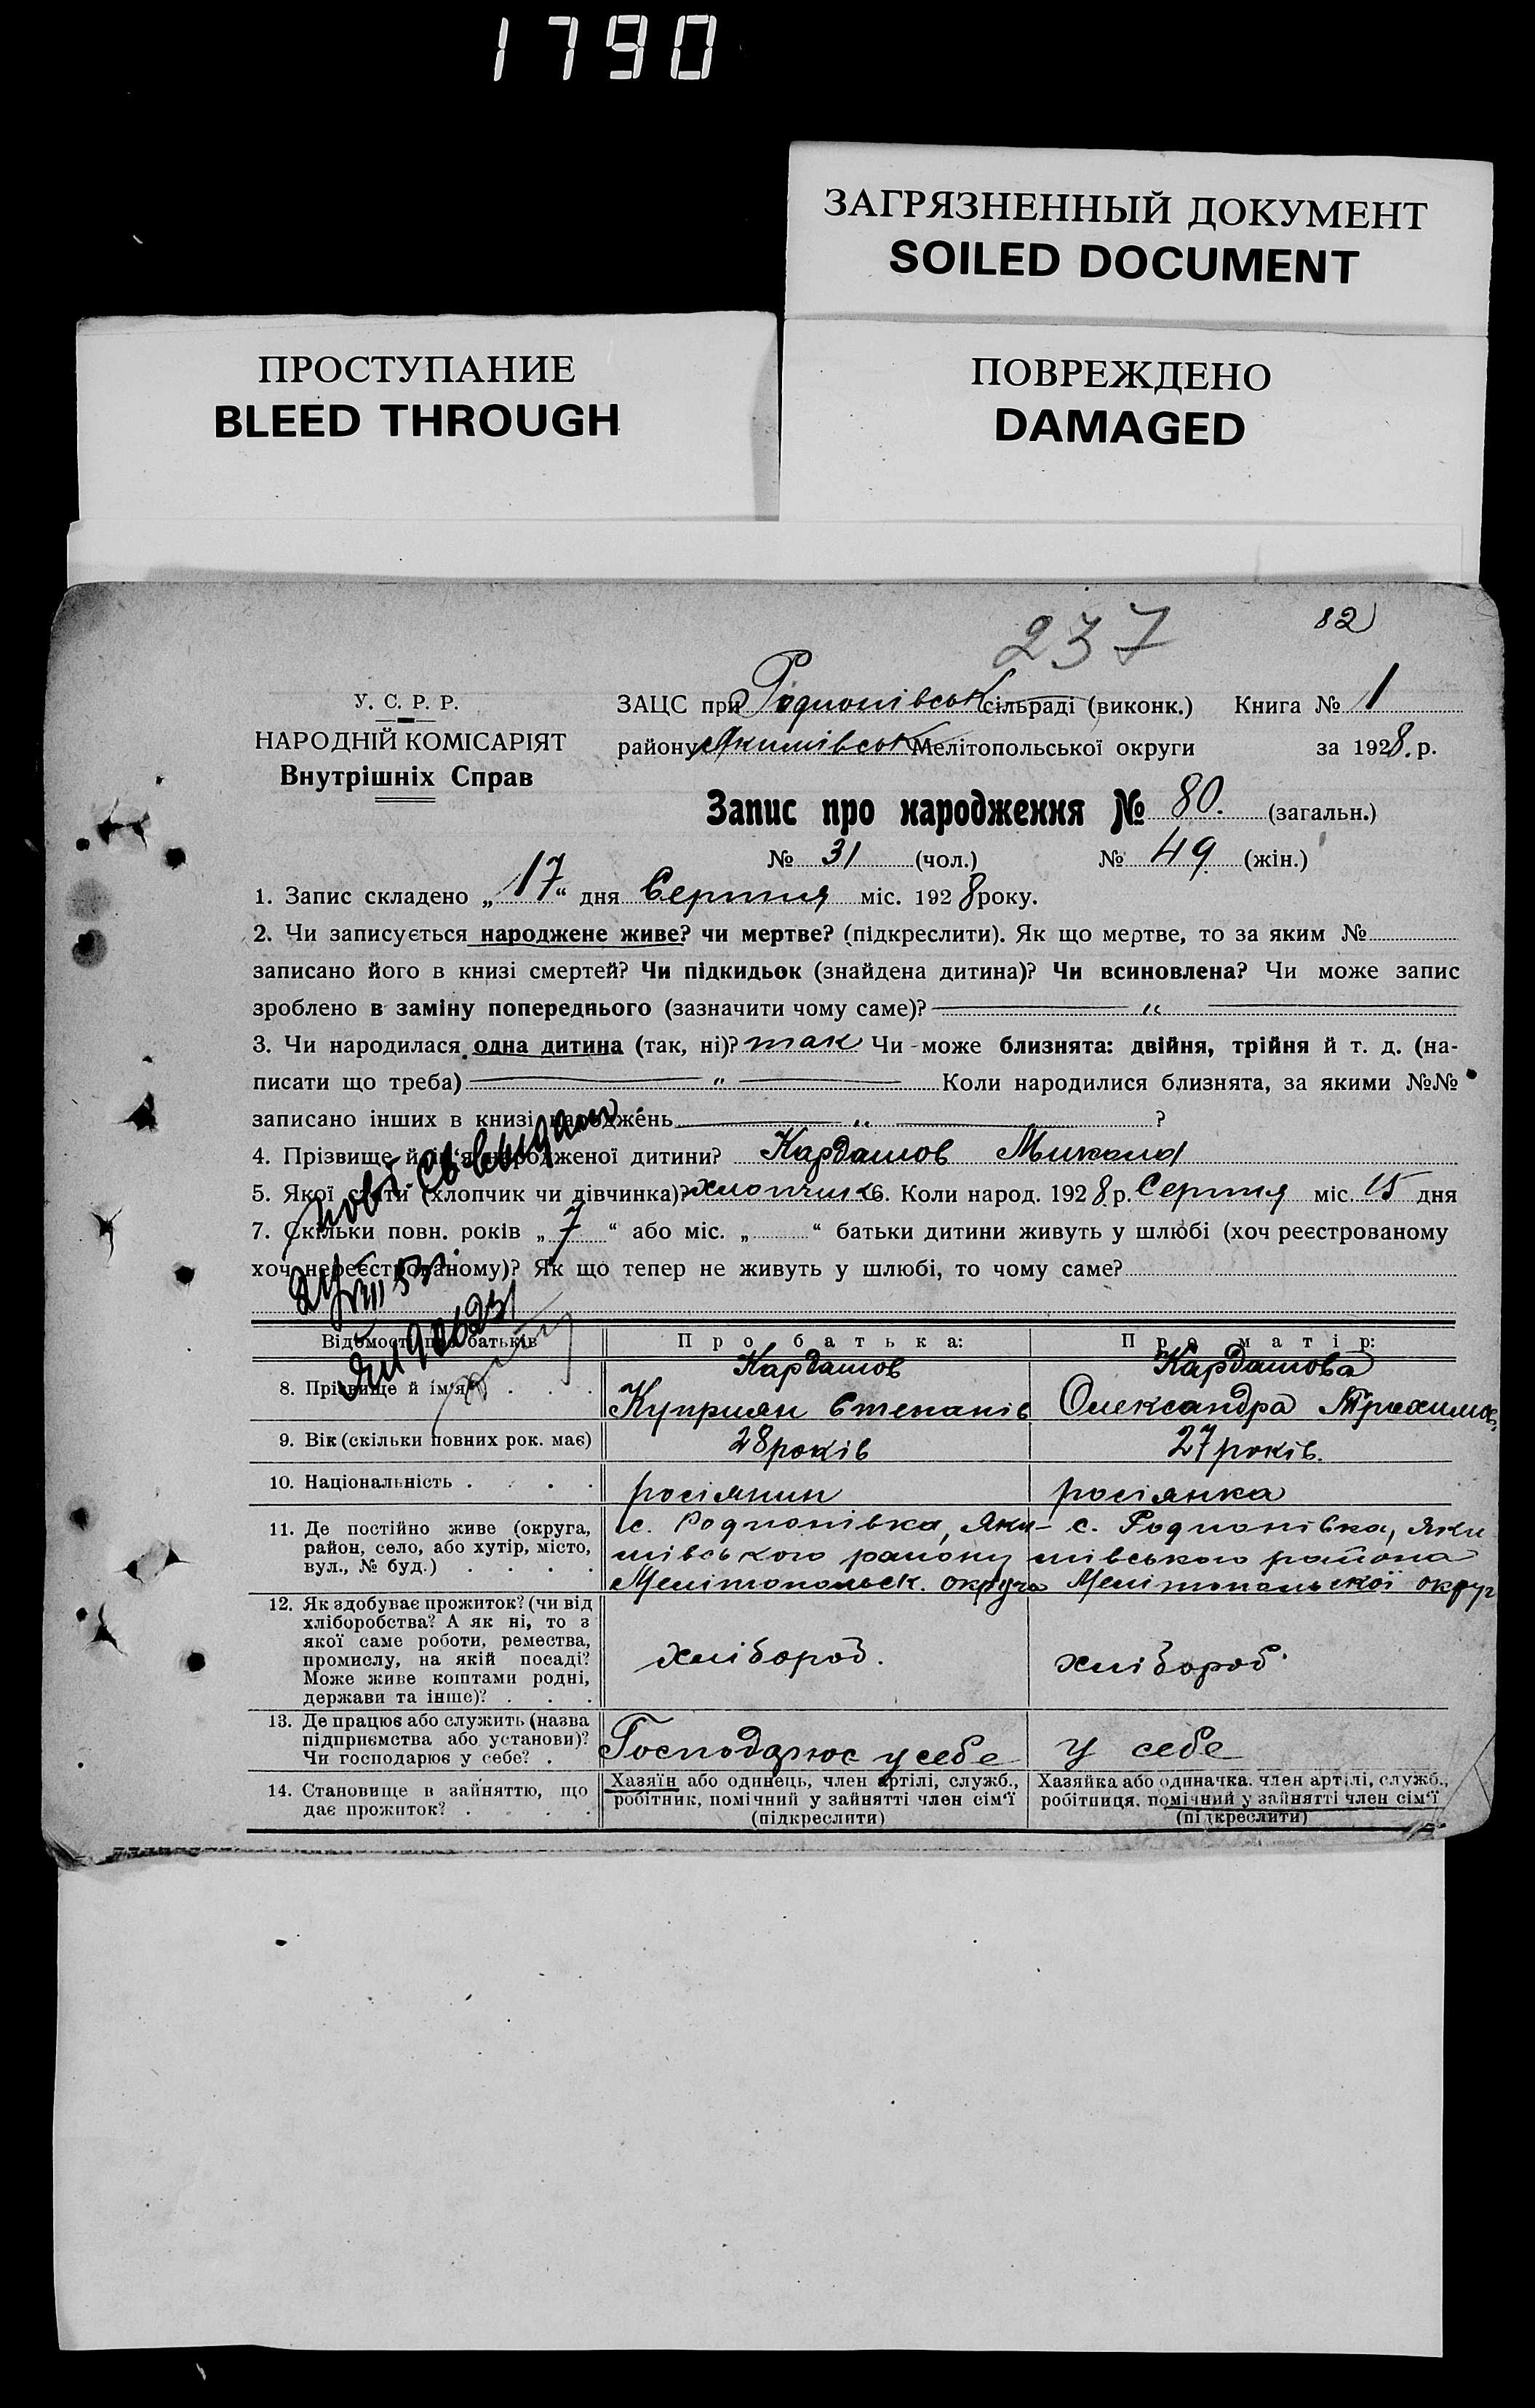 1790
ЗАГРЯЗНЕННЫЙ ДОКУМЕНТ
SOILED DOCUMENT
ПРОСТУПАНИЕ
BLEED THROUGH
ПОВРЕЖДЕНО
DAMAGED
237
82
У. С. Р. Р.
НАРОДНІЙ КОМІСАРІЯТ
Внутрішніх Справ
ЗАЦС при Родионівськ сільраді (виконк.) Книга № 1
району Якимівськ Мелітопольської округи за 1928. р.
Запис про народження № 80. (загальн.)
№ 31 (чол.) № 49 (жін.)
1. Запис складено „17“ дня Серпня міс. 1928 року.
2. Чи записується народжене живе? чи мертве? (підкреслити). Як що мертве, то за яким №
записано його в книзі смертей? Чи підкидьок (знайдена дитина)? Чи всиновлена? Чи може запис
зроблено в заміну попереднього (зазначити чому саме)? — „ —
3. Чи народилася одна дитина (так, ні)? так Чи може близнята: двійня, трійня й т. д. (на-
писати що треба) — „ — Коли народилися близнята, за якими №№
записано інших в книзі народжень — „ — ?
4. Прізвище й ім‘я народженої дитини? Кардашов Микола
5. Якої стати (хлопчик чи дівчинка)? хлопчик 6. Коли народ. 1928 р. Серпня міс. 15 дня
7. Скільки повн. років „7“ або міс. „ “ батьки дитини живуть у шлюбі (хоч реєстрованому
хоч нереєстрованому)? Як що тепер не живуть у шлюбі, то чому саме?
Відомості про батьків
Про батька:
Про матір:
8. Прізвище й ім‘я . . .
Кардашов
Куприян Степанів
Кардашова
Олександра Трохимов
9. Вік (скільки повних рок. має)
28 років
27 років.
10. Національність . . . .
росіянин
росіянка
11. Де постійно живе (округа,
район, село, або хутір, місто,
вул., № буд.) . . . .
с. Родионівка, Яки-
мівського району
Мелітопольск. округа
с. Родионівка, Яки
мівського района
Мелітопольської округ
12. Як здобуває прожиток? (чи від
хліборобства? А як ні, то з
якої саме роботи, ремества,
промислу, на якій посаді?
Може живе коштами родні,
держави та інше)? . . .
хлібороб.
хлібороб.
13. Де працює або служить (назва
підприємства або установи)?
Чи господарює у себе? .
Господарює у себе
у себе
14. Становище в зайняттю, що
дає прожиток? . . . .
Хазяїн або одинець, член артілі, служб.,
робітник, помічний у зайнятті член сім‘ї
(підкреслити)
Хазяйка або одиначка. член артілі, служб.,
робітниця, помічний у зайнятті член сім‘ї
(підкреслити)